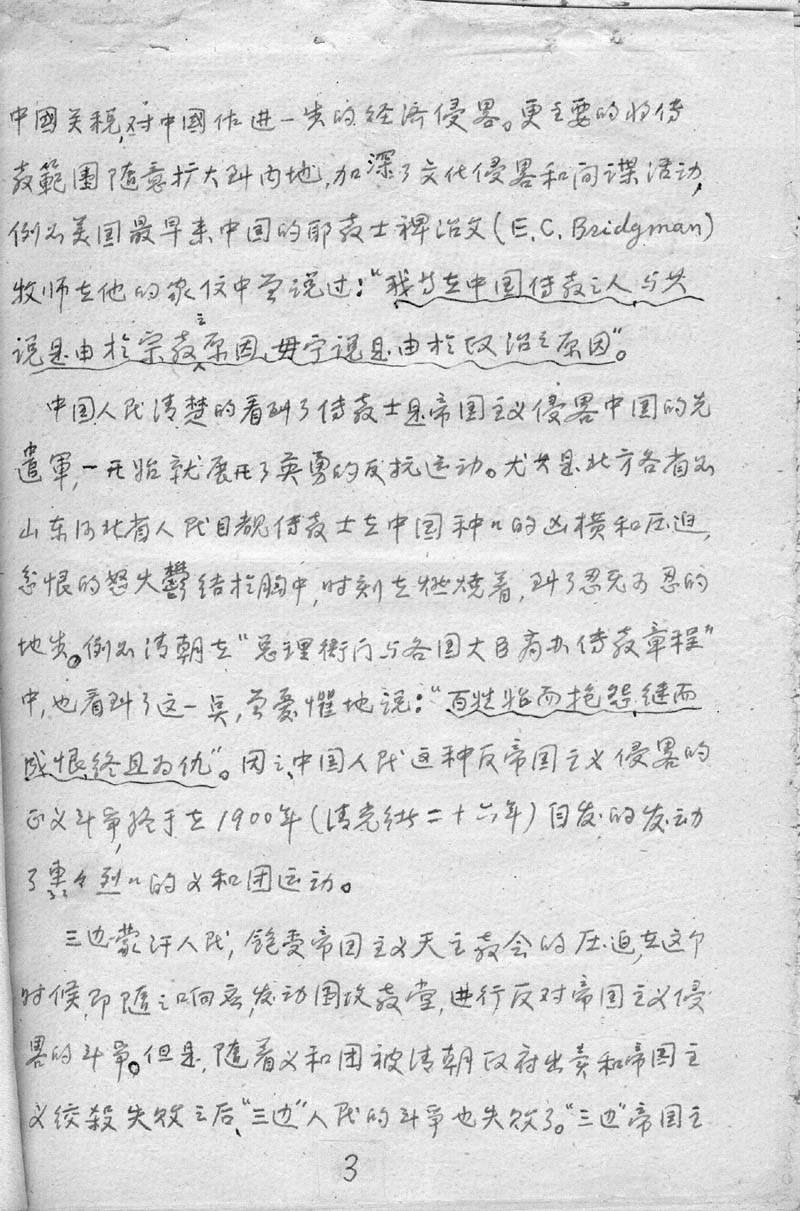 中國关税,对中國作進一步的经济侵畧。更主要的将傳
教範围隨意扩大到内地,加深了文化侵畧和间谍活动,
例如美国最早来中国的耶教士裨治文(E.C.Bridgman)
牧师在他的家信中曾说过:“我等在中国傳教之人,与其
说是由於宗教之原因,毋宁说是由於政治之原因”。
中国人民清楚的看到了傳教士是帝国主义侵畧中国的先
遣軍,一开始就展开了英勇的反抗运动。尤其是北方各省如
山东河北省人民目覩傳教士在中国种〃的凶横和压迫,
忿恨的怒火鬱结於胸中,时刻在燃烧着,到了忍无可忍的
地步。例如清朝在“总理衙门与各国大臣商办傳教章程”
中,也看到了这一点,曾憂懼地说:“百姓始而抱怨,继而
成恨,终且为仇”。因之,中国人民这种反帝国主义侵畧的
正义斗争,终于在1900年(清光绪二十六年)自发的发动
了轰々烈〃的义和团运动。
三边蒙汗人民,飽受帝国主义天主教会的压迫,在这个
时候,即隨之响应,发动围攻教堂,进行反对帝国主义侵
畧的斗争。但是,隨着义和团被清朝政府出卖和帝国主
义绞殺失败之后,“三边”人民的斗争也失败了。“三边”帝国主
3